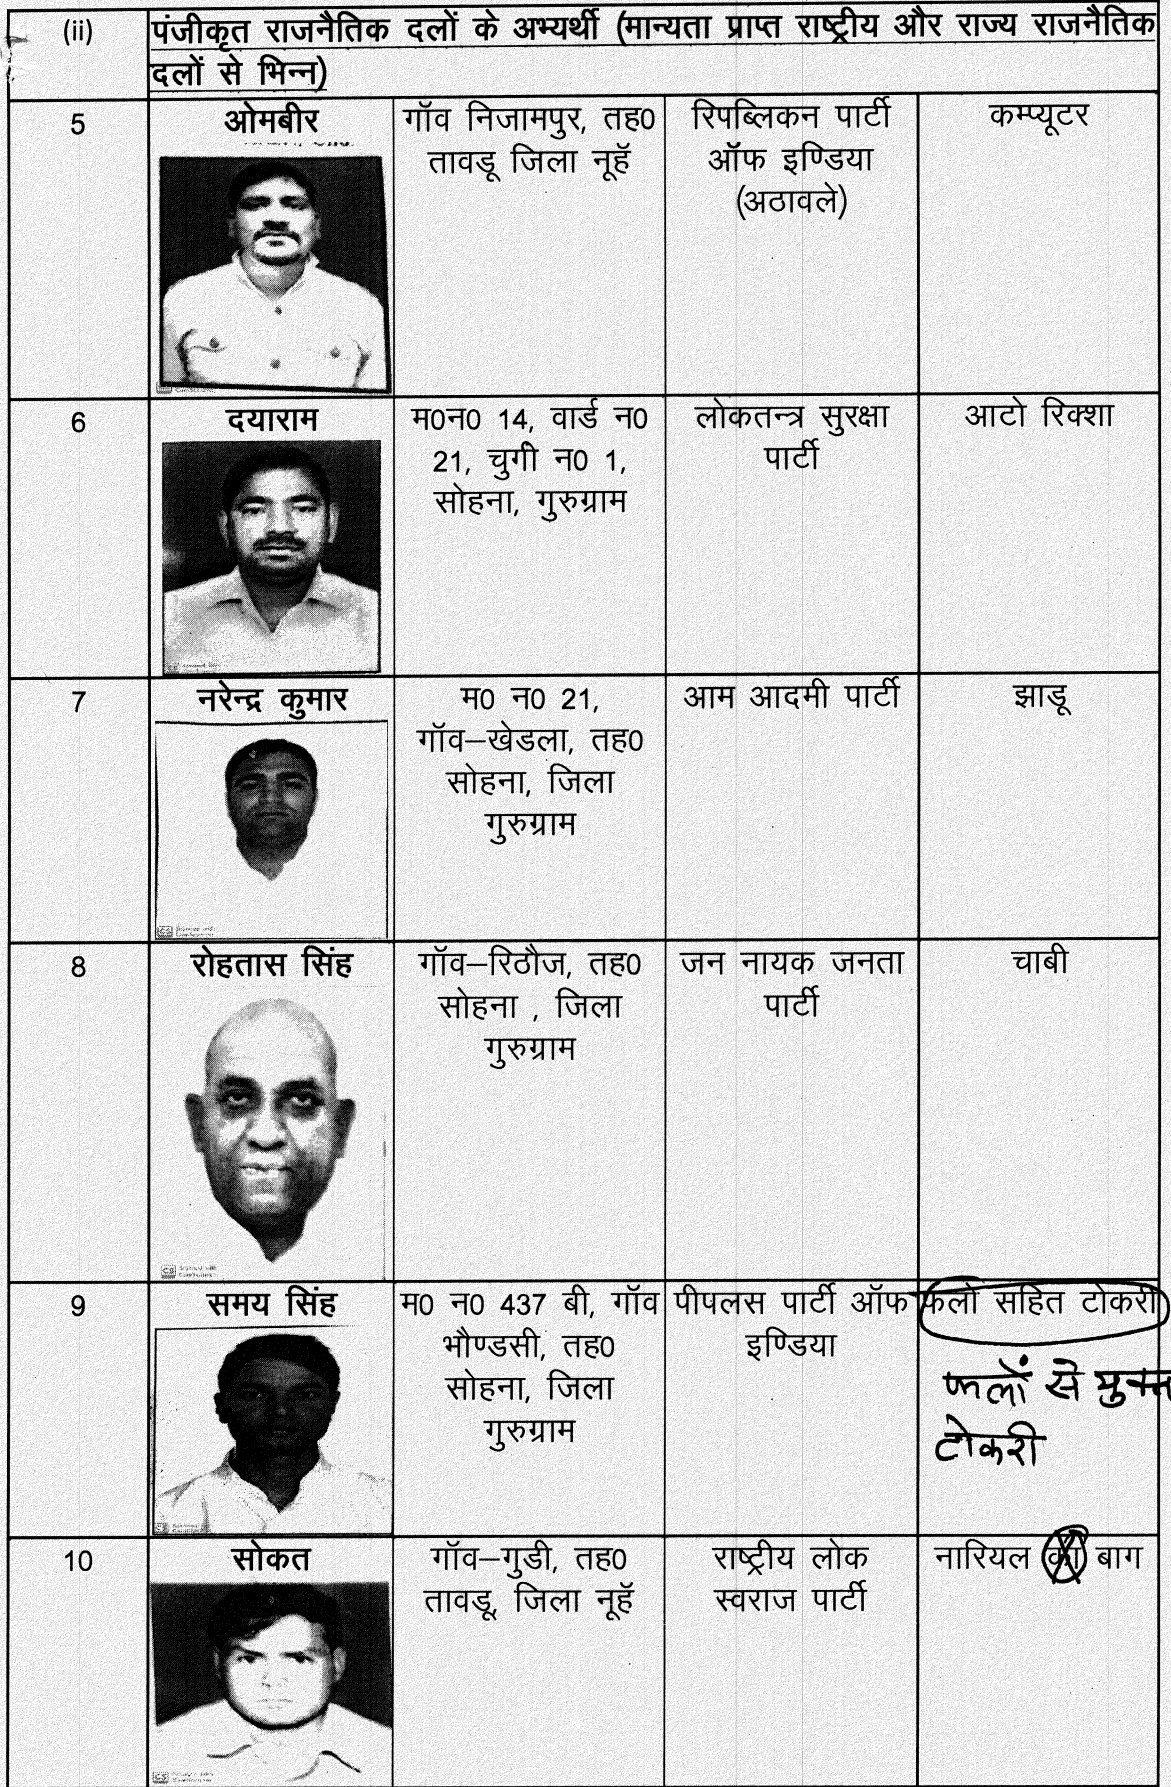 (ii)
पंजीकृत राजनैतिक दलों के अभ्यर्थी (मान्यता प्राप्त राष्ट्रीय और राज्य राजनैतिक
दलों से भिन्न)
5
ओमबीर
गॉव निजामपुर, तह0
तावडू जिला नूहॅ
रिपब्लिकन पार्टी
ऑफ इण्डिया
(अठावले)
कम्प्यूटर
6
दयाराम
म0न0 14, वार्ड न0
21, चुगी न0 1,
सोहना, गुरुग्राम
लोकतन्त्र सुरक्षा
पार्टी
आटो रिक्शा
7
नरेन्द्र कुमार
म0 न0 21,
गॉव–खेडला, तह0
सोहना, जिला
गुरुग्राम
आम आदमी पार्टी
झाडू
8
रोहतास सिंह
गॉव–रिठौज, तह0
सोहना , जिला
गुरुग्राम
जन नायक जनता
पार्टी
चाबी
9
समय सिंह
म0 न0 437 बी, गॉव
भौण्डसी, तह0
सोहना, जिला
गुरुग्राम
पीपलस पार्टी ऑफ
इण्डिया
फलों सहित टोकरी
फलों से युक्त
टोकरी
10
सोकत
गॉव–गुडी, तह0
तावडू, जिला नूहॅ
राष्ट्रीय लोक
स्वराज पार्टी
नारियल का बाग